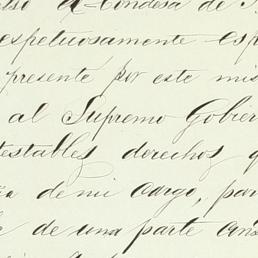 Condesa de
espetuosamente esp
presente por este mis
al Supremo Gobier
testables derechos q
de mi cargo, par
de una parte